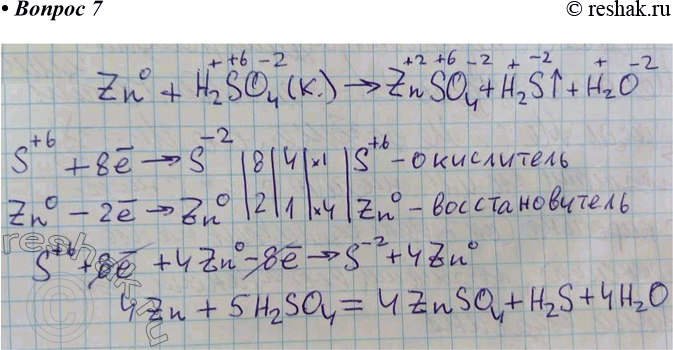 • Вопрос 7
© reshak.ru
Zn⁰ + H₂⁺S⁺⁶O₄⁻²(к.) → Zn⁺²S⁺⁶O₄⁻² + H₂⁺S⁻²↑ + H₂⁺O⁻²
S⁺⁶ + 8ē → S⁻² | 8 | 4 | ×1 | S⁺⁶ – окислитель
Zn⁰ – 2ē → Zn⁰ | 2 | 1 | ×4 | Zn⁰ – восстановитель
S⁺⁶ + 8ē + 4Zn⁰ – 8ē → S⁻² + 4Zn⁰
4Zn + 5H₂SO₄ = 4ZnSO₄ + H₂S + 4H₂O
reshak.ru